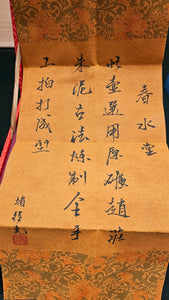 春水堂
此壺選用原礦趙莊
朱泥古法煉制全手
工拍打成型